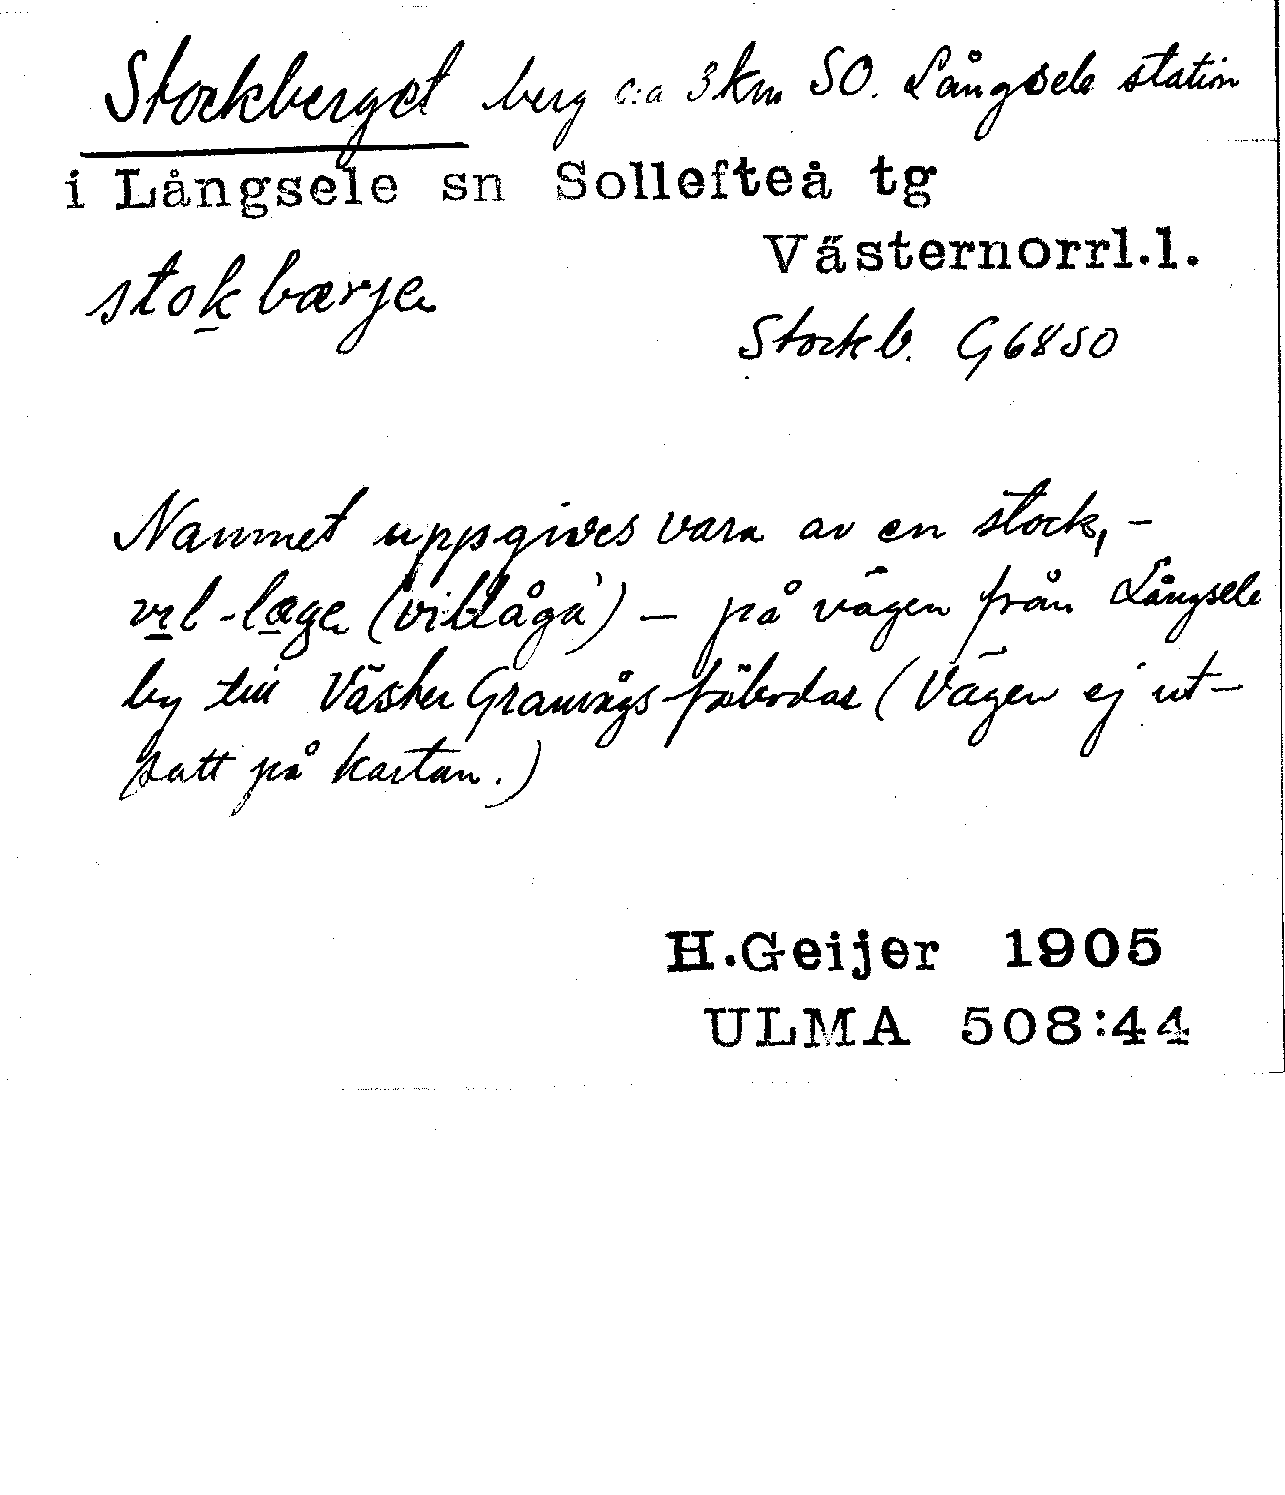 Stockberget berg c:a 3 km SO. Långsele station
i Långsele sn Sollefteå tg
Västernorrl.l.
stokbærje
Stockb. G6850
Namnet uppgives vara av en stock, -
vil-læge (villåga) - på vägen från Långsele
by till Väster Granvågs-fäbodar (Vägen ej ut-
satt på kartan.)
H.Geijer 1905
ULMA 508:44